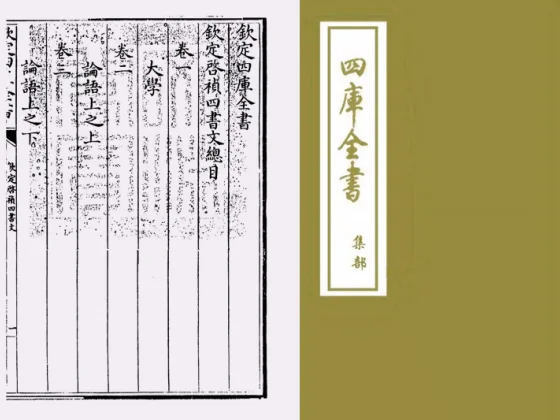 欽定四庫全書
欽定啓禎四書文總目
卷一
大學
卷二
論語上之上
卷三
論語上之下
欽定啓禎四書文
一
四庫全書
集部